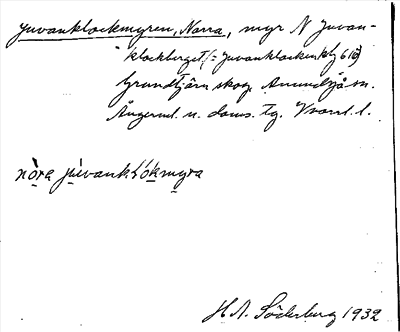 Juvanklockmyren, Norra, myr N Juvan-
klockberget (= Juvanklocken
Grundtjärn skog Anundsjö sn.
Ångerml. n. doms. tg. Vnorrl. l.
nòra jùvank myra
H.A. Söderberg 1932